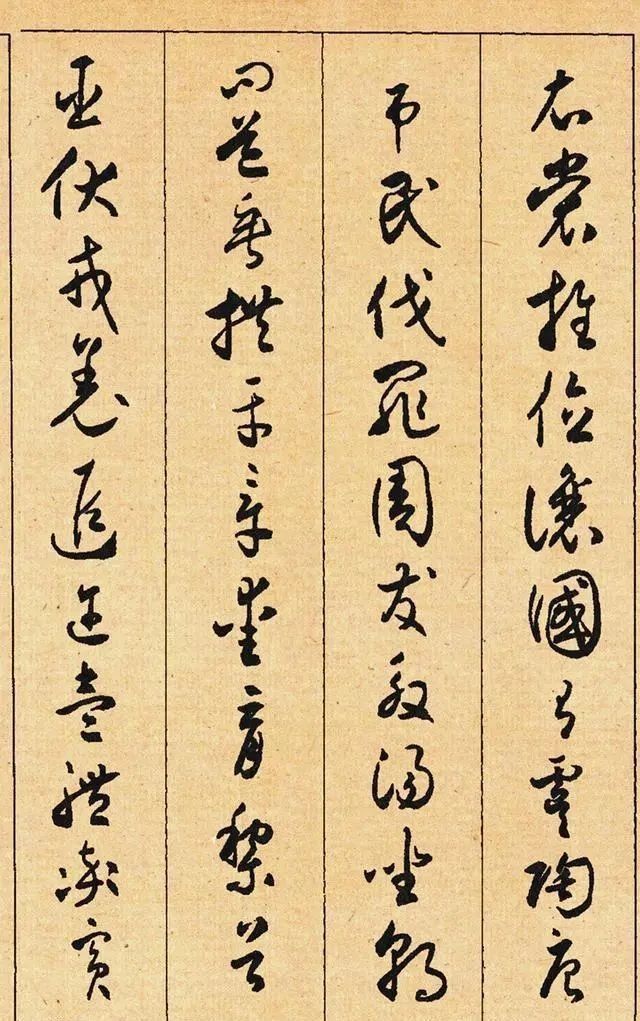 衣裳推位讓國有虞陶唐
弔民伐罪周發殷湯坐朝
問道垂拱平章愛育黎首
臣伏戎羌遐邇壹體率賓